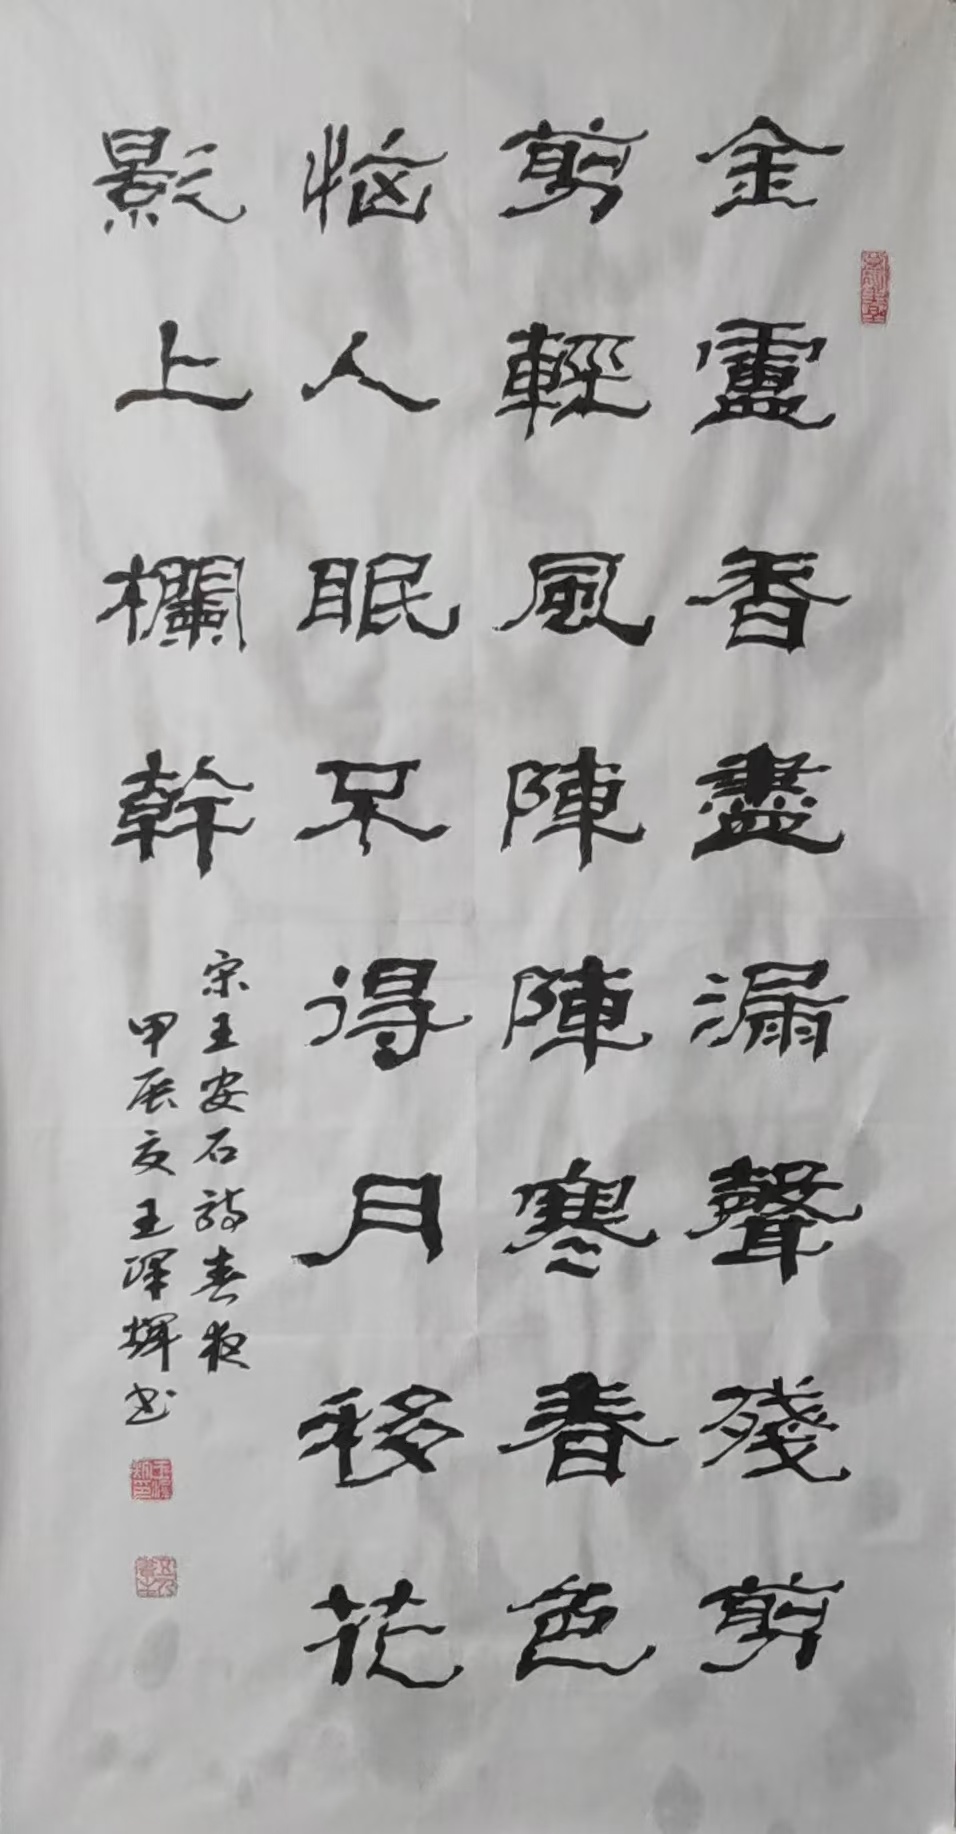 金爐香盡漏聲殘剪
剪輕風陣陣寒春色
惱人眠不得月移花
影上欄幹
宋王安石詩春夜
甲辰夏王澤輝书